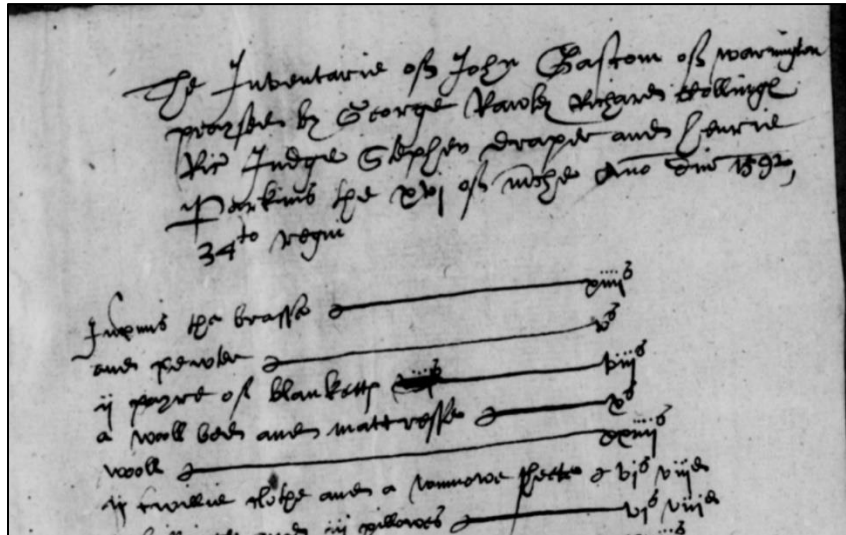 The Inventarie off John Eastom off warington
praysed by George Rawly Richard Hollingh
Ric Judge Stephen Draper and Henrie
Parkins the xvj off mche Ano dni 1592,
34to regni
Inpmis the brasse xiiijs
and pewter vs
ij payre off blanketts viijs
a wooll bed and mattresse xs
wooll xxiiijs
ij twillie clothe and a winnowe sheete vjs viijd
and iij pillowes vjs viijd